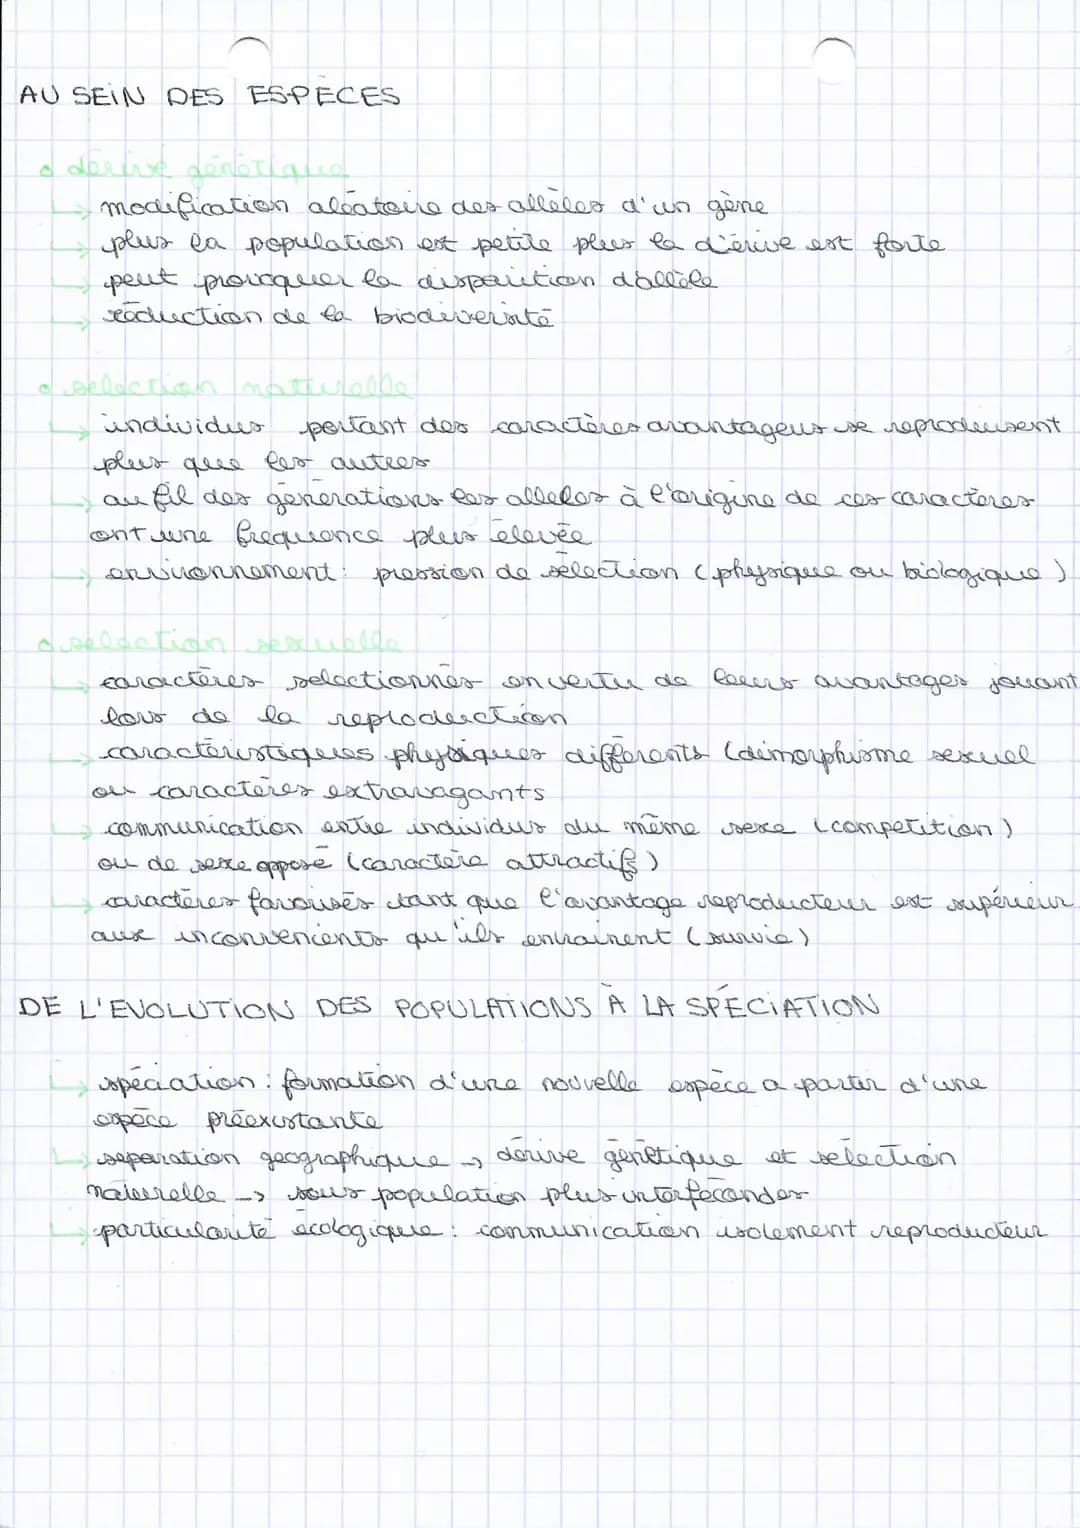 AU SEIN DES ESPÈCES
• dérive génétique
↳ modification aléatoire des allèles d'un gène
↳ plus la population est petite plus la dérive est forte
↳ peut provoquer la disparition d'allèle
↳ réduction de la biodiversité
• selection naturelle
↳ individus portant des caractères avantageus se reproduisent
plus que les autres
↳ au fil des générations les alleles à l'origine de ces caractères
ont une frequence plus élevée
↳ environnement : pression de sélection (physique ou biologique)
• selection sexuelle
↳ caractères selectionnés en vertu de leurs avantages jouant
lors de la reproduction
↳ caractéristiques physiques différents (dimorphisme sexuel
ou caractères extravagants
↳ communication entre individus du même sexe (competition)
ou de sexe opposé (caractère attractif)
↳ caractères favorisés tant que l'avantage reproducteur est supérieur
aux inconvenients qu'ils entrainent (survie)
DE L'EVOLUTION DES POPULATIONS À LA SPÉCIATION
↳ spéciation : formation d'une nouvelle espèce a partir d'une
espèce préexistante
↳ separation geographique → dérive génétique et selection
naturelle → sous population plus interfecondes
↳ particularité écologique : communication isolement reproducteur